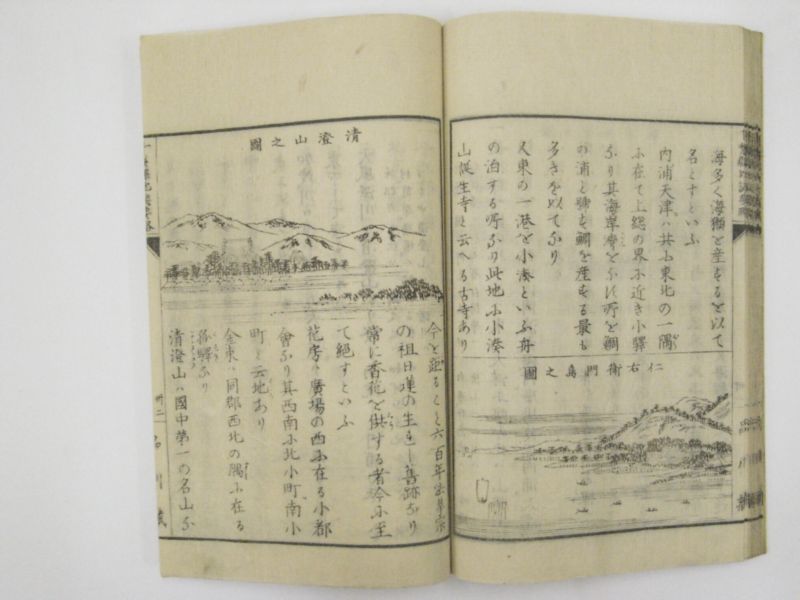 海多く海獺を産するを以て
名とすといふ
内浦天津ハ共ふ東北の一隅
ふ在て上総の界ふ近き小驛
なり其海岸
の浦と
多きを以てなり
又東の一港を小湊といふ舟
の泊する所なり此地ふ小湊
山誕生寺と云へる古寺あり
仁右衛門島之圖
今を距ること六百年
の祖日蓮の生れし舊跡なり
常に香花を供する者今ふ至
て絶すといふ
花房ハ廣場の西ふ在る小都
會なり其西南ふ北小町南小
町と云地あり
金束ハ同郡西北の隅ふ在る
孤驛なり
清澄山ハ國中第一の名山な
清澄山之圖